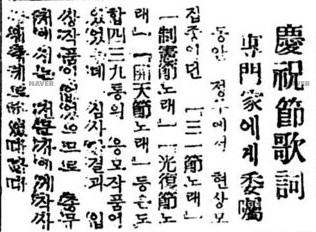 慶祝節歌詞
専門家에게 委囑
동안 정부에서 현상모
집중이던 「三一節노래」
「制憲節노래」「光復節노
래」「開天節노래」 등은 도
합 四三九통의 응모작품이
있었는데 심사한 결과 입
상작품이 없었으므로 총무